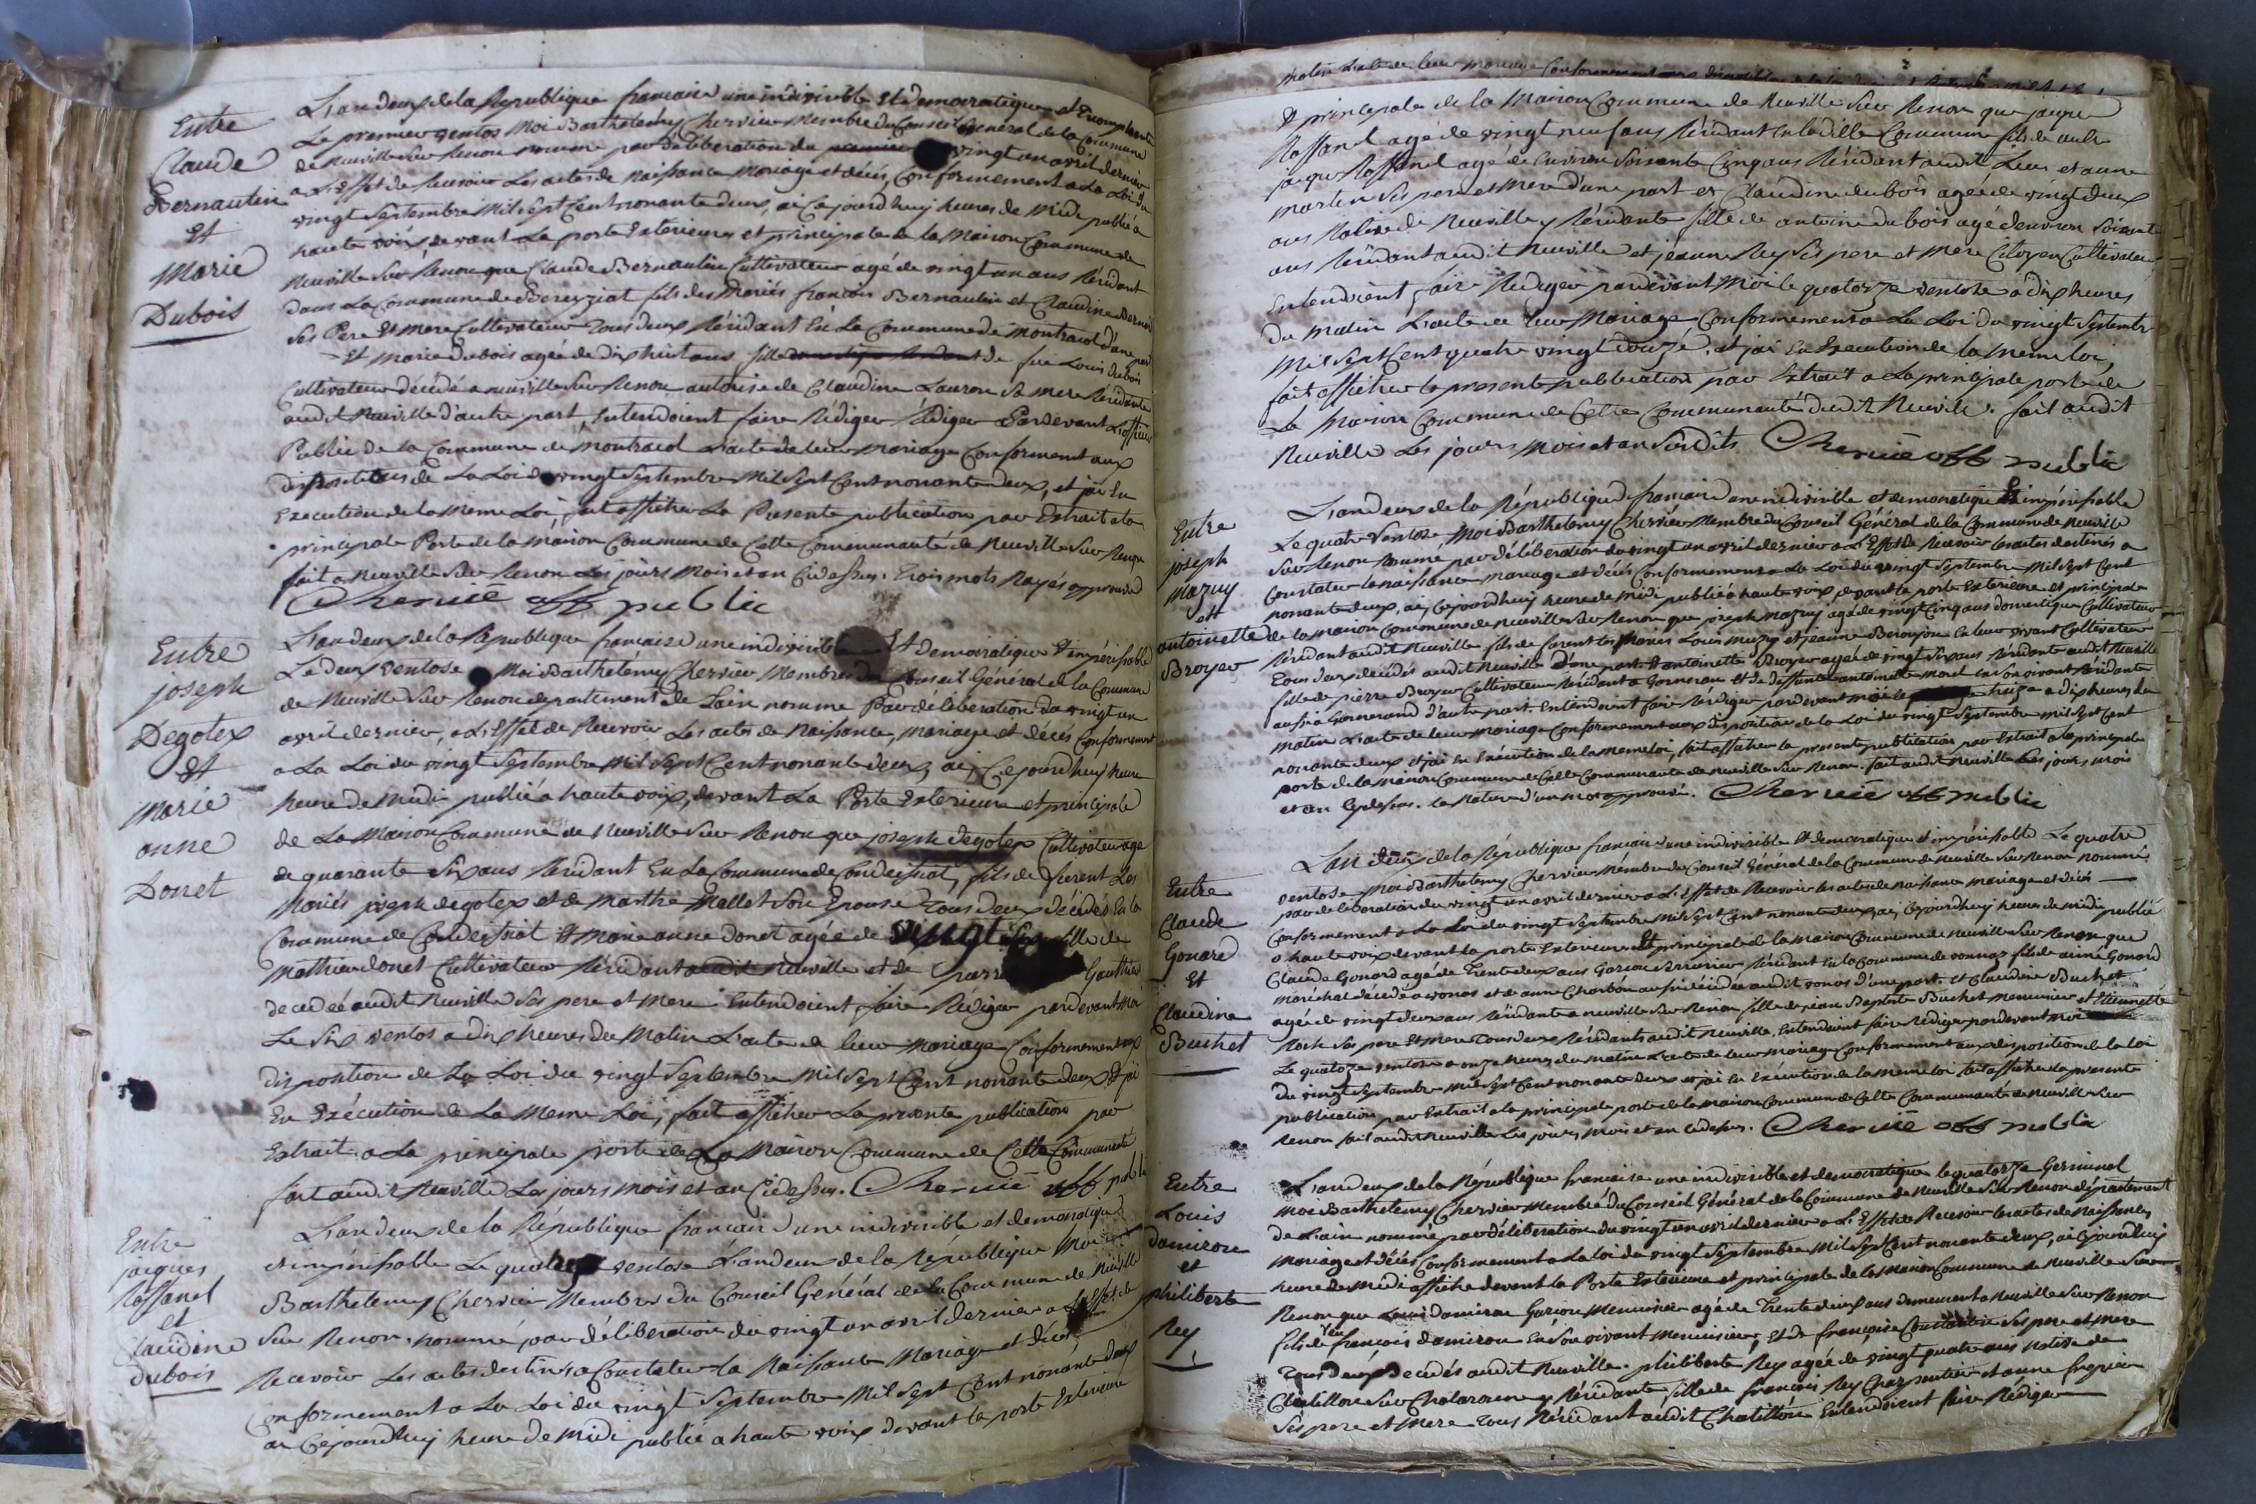 Entre
Claude
Bernautin
Et
Marie
Dubois
L'an deux de la République francaise une indivisible Et democratique et
Le premier ventos Moi Barthelemy Chervier Membre du Conseil Général de la Commune
de Neuville Sur Renon nommé par délibération du premier vingt un avril dernier
a L'Effet de Recevoir Les actes de Naissance Mariage et décés, Conformement a La Loi du
vingt Septembre Mil Sept Cent nonante deux, ai Cejourd'huy heures de Midi publié a
haute voix devant La porte Exterieure et principale de la Maison Commune de
Neuville Sur Renon que Claude Bernautin Cultivateur agé de vingt un ans Résidant
dans La Commune de Bereyziat fils des Mariés francois Bernautin et Claudine
Ses Pere Et Mere Cultivateur Tous deux Résidant En La Commune de Montracol d'une part
Et Marie Dubois agée de dix huit ans fille de feu Louis Dubois
Cultivateur décédé a neuville Sur Renon autorisé de Claudine Lauron Sa mere Résidante
audit Neuville d'autre part, Entendoient faire Rédiger Rédiger Pardevant L'officier
Public de la Commune de Montracol L'acte de leur Mariage Conforment aux
dispositions de La Loi du vingt Septembre Mil Sept Cent nonante deux, et jai En
Execution de la Meme Loi, fait afficher La Presente publication par Extrait a la
principale Porte de la maison Commune de Cette Communauté de Neuville Sur Renon
fait a Neuville Sur Renon Les jours Mois et an Cidessus. Trois mots Rayés approuvé
Chervié off public
Entre
joseph
Degotex
Et
Marie
anne
Donet
L'an deux de la République francaise une indivisible Et democratique Et impérissable
Le deux ventose Moi Barthelémy Chervier Membre du Conseil Général de la Commune
de Neuville Sur Renon departement de Lain nommé Par délibération du vingt un
avril dernier, a L'Effet de Recevoir Les actes de Naissance, mariage et décés Conformement
a La Loi du vingt Septembre Mil Sept Cent nonante deux, ai Cejourd'huy heure
heure de Midi publié a haute voix, devant La Porte Exterieure et principale
de La Maison Commune de Neuville Sur Renon que joseph degotex Cultivateur agé
de quarante Six ans Résidant En La Commune de Condeissiat, fils de furent Les
Mariés joseph degotex et de Marthe Mallet Son Epouse Tous deux décédés En la
Commune de Condeissiat Et Marie anne Donet agée de vingt fille de
Mathieu donet Cultivateur Résidant audit Neuville et de Gauthier
decedeé audit Neuville Ses pere et Mere Entendoient, faire Rédiger pardevant Moi
Le Six ventos a dix heures du Matin L'acte de leur Mariage Conformement aux
disposition de La Loi du vingt Septembre Mil Sept Cent nonante deux Et jai
En Exécution de La Meme Loi, fait afficher La presente publication par
Extrait a La principale porte de La Maison Commune de Cette Communauté
fait audit Neuville Les jours mois et an Cidessus. Chervié off public
Entre
jacques
Raffanel
et
Claudine
dubois
L'an deux de la République francaise une indivisible et democratique
et impérissable Le quatre ventose L'an deux de la République Moi
Barthelemy Chervier Membre du Conseil Général de la Commune de Neuville
Sur Renon, nommé par délibération du vingt un avril dernier a L'Effet de
Recevoir Les actes destinés a Constater la Naissance Mariage et décés
Conformement a La Loi du vingt Septembre Mil Sept Cent nonante deux
ai Cejourdhuy heure de Midi publié a haute voix devant la porte Exterieure
Et principale de la Maison Commune de Neuville Sur Renon que jaque
Raffanel agé de vingt neuf ans Résidant En la dite Commune fils de autre
jaque Raffanel agé de Environ Soixante Cinq ans Résidant audit Lieu et anne
Martin Ses pere et Mere d'une part et Claudine dubois agée de vingt deux
ans Native de Neuville y Résidante fille de antoine dubois agé d'environ Soixante
ans Résidant audit Neuville et jeanne Rey Ses pere et Mere Citoyen Cultivateur
Entendoient faire Rédiger pardevant Moi le quatorze ventose a dix heures
du Matin L'acte de leur Mariage Conformement a La Loi du vingt Septembre
Mil Sept Cent quatre vingt douze. et jai En Execution de la Meme loi,
fait afficher la presente publication par Extrait a La principale porte de
La Maison Commune de Cette Communauté dudit Neuville. fait audit
Neuville Les jours Mois et an Susdits. Chervié off public
Entre
joseph
Mazuy
et
antoinette
Broyer
L'an deux de la République francaise une indivisible et democratique Et impérissable
Le quatre ventose Moi Barthelemy Chervier Membre du Conseil Général de la Commune de Neuville
Sur Renon Nommé par délibération du vingt un avril dernier a L'Effet de Recevoir les actes destinés a
Constater la Naissance Mariage et décés Conformement a La Loi du vingt Septembre Mil Sept Cent
nonante deux, ai Cejourd'huy heure de Midi publié a haute voix devant la porte Exterieure et principale
de la Maison Commune de Neuville Sur Renon que joseph Mazuy agé de vingt Cinq ans domestique Cultivateur
Résidant audit Neuville fils de furent les Mariés Louis Mazuy et jeanne En leur vivant Cultivateur
Tous deux décédés audit Neuville D'une part Et antoinette Broyer agée de vingt Six ans Résidante audit Neuville
fille de pierre Broyer Cultivateur Résidant a et de deffunte antoinette Morel En Son vivant Résidante
aussi a d'autre part. Entendoient faire Rédiger pardevant moi le treize a dix heures du
matin L'acte de leur Mariage Conformement aux disposition de la Loi du vingt Septembre Mil Sept Cent
nonante deux et jai En Exécution de la Meme loi, fait afficher la presente publication par Extrait a la principale
porte de la Maison Commune de Cette Communauté de Neuville Sur Renon. fait audit Neuville Les jours, mois
et an Cydessus. la Rature d'un mot approuvé. Chervié off public
Entre
Claude
Gonard
Et
Claudine
Buchet
L'an deux de la République francaise une indivisible Et democratique Et impérissable Le quatre
ventose Moi Barthelemy Chervier Membre du Conseil Général de la Commune de Neuville Sur Renon nommé
par deliberation du vingt un avril dernier a L'Effet de Recevoir les actes de naissance mariage et décés
Conformement a La Loi du vingt Septembre Mil Sept Cent nonante deux, ai Cejourdhuy heure de midi publié
a haute voix devant la porte Exterieure Et principale de la maison Commune de Neuville Sur Renon que
Claude Gonard agé de Trente deux ans Garcon Résidant En la Commune de vonnas fils de aimé Gonard
Maréchal décédé a vonas et de anne Charbon aussi décédée audit vonas d'une part. et Claudine Buchet
agée de vingt deux ans Résidante a neuville Sur Renon fille de jean Baptiste Buchet Menuisier et
Roch Ses pere Et Mere Tous deux Résidants audit Neuville, Entendoient faire Rédiger pardevant moi
Le quatorze ventose a onze heures du Matin L'acte de leur Mariage Conformement aux disposition de la loi
du vingt Septembre Mil Sept Cent nonante deux et jai En Exécution de la Meme loi fait afficher la presente
publication par Extrait a la principale porte de la Maison Commune de Cette Communauté de Neuville Sur
Renon fait audit Neuville Les jours Mois et an cidessus. Chervié off public
Entre
Louis
Damiron
et
philiberte
Rey
L'an deux de la République francaise une indivisible et democratique le quatorze Germinal
Moi Barthelemy Chervier Membre du Conseil Général de la Commune de Neuville Sur Renon département
de Lain nommé par déliberation du vingt un avril dernier a L'Effet de Recevoir les actes de Naissances
Mariage et décés Conformement a la loi du vingt Septembre Mil Sept Cent nonante deux, ai Cejourd'huy
heure de Midi affiché devant la Porte Exterieure et principale de la Maison Commune de Neuville Sur
Renon que Louis damiron Garcon Menuisier agé de Trente deux ans demeurant a Neuville Sur Renon
fils de feu francois damiron En Son vivant Menuisier, Et de francoise Ses pere et Mere
Tous deux décédés audit Neuville. philiberte Rey agée de vingt quatre ans native de
Chatillon Sur Chalaronne y Résidante fille de francois Rey Charpentier et anne
Ses pere et Mere Tous Résidant audit Chatillon Entendoient faire Rédiger